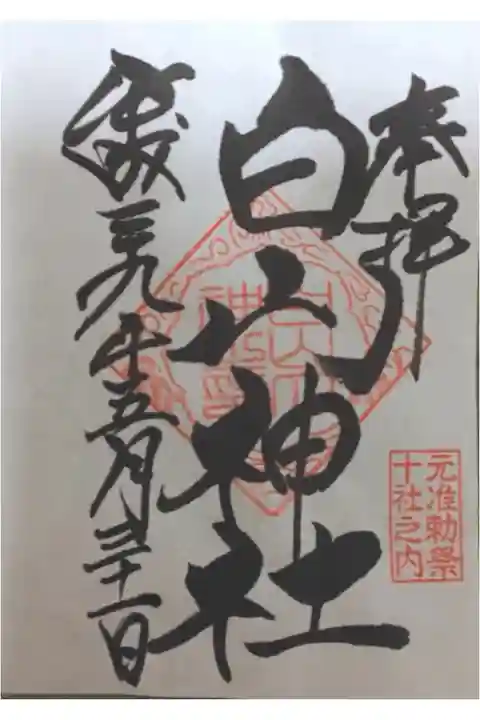 奉拝
白山神社
平成二九年五月三十一日
元准勅祭
十社之内